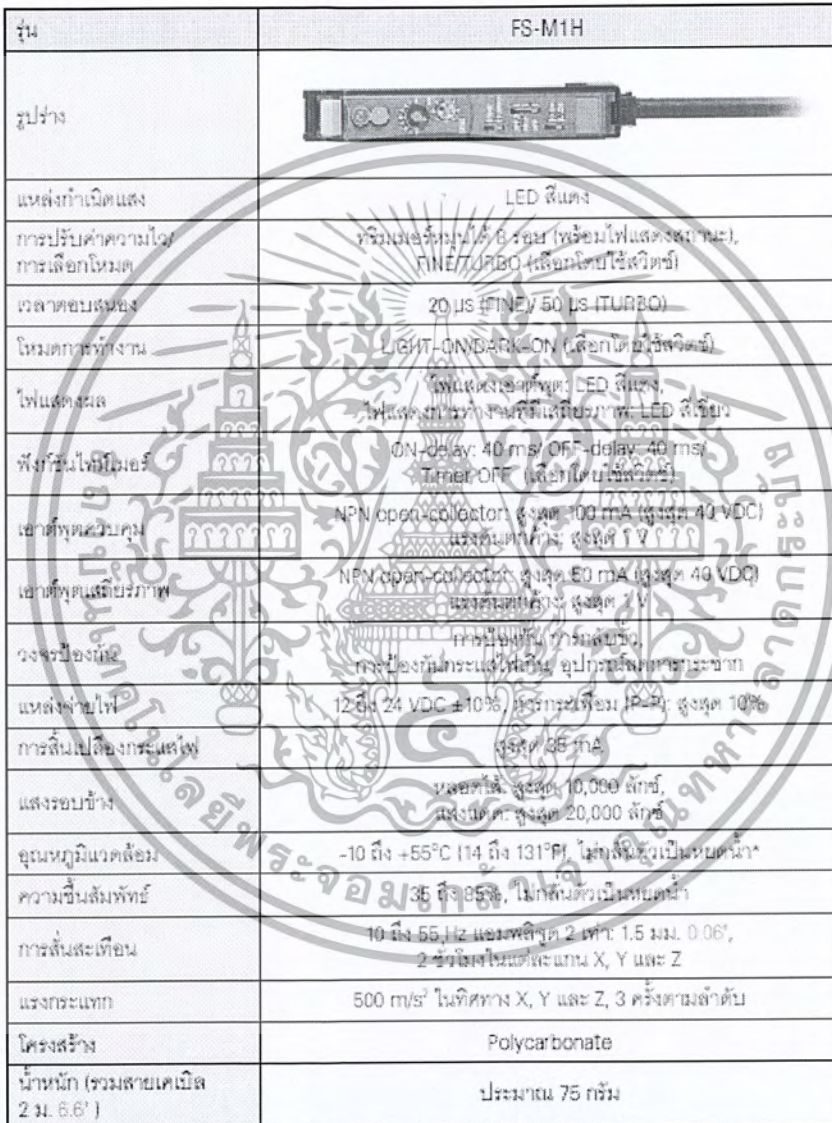 รุ่น
FS-M1H
รูปร่าง
แหล่งกำเนิดแสง
LED สีแดง
การปรับค่าความไว/
การเลือกโหมด
ทริมเมอร์หมุนได้ 8 รอบ (พร้อมไฟแสดงสถานะ),
FINE/TURBO (เลือกโดยใช้สวิตซ์)
เวลาตอบสนอง
20 µs (FINE)/ 50 µs (TURBO)
โหมดการทำงาน
LIGHT-ON/DARK-ON (เลือกโดยใช้สวิตซ์)
ไฟแสดงผล
ไฟแสดงเอาต์พุต: LED สีแดง,
ไฟแสดงการทำงานที่มีเสถียรภาพ: LED สีเขียว
ฟังก์ชันไทม์เมอร์
ON-delay: 40 ms/ OFF-delay: 40 ms/
Timer OFF (เลือกโดยใช้สวิตซ์)
เอาต์พุตควบคุม
NPN open-collector: สูงสุด 100 mA (สูงสุด 40 VDC)
แรงดันตกค้าง: สูงสุด 1 V
เอาต์พุตเสถียรภาพ
NPN open-collector: สูงสุด 50 mA (สูงสุด 40 VDC)
แรงดันตกค้าง: สูงสุด 1 V
วงจรป้องกัน
การป้องกันการกลับขั้ว,
การป้องกันกระแสไฟเกิน, อุปกรณ์ลดการกระชาก
แหล่งจ่ายไฟ
12 ถึง 24 VDC ±10%, การกระเพื่อม (P-P): สูงสุด 10%
การสิ้นเปลืองกระแสไฟ
สูงสุด 35 mA
แสงรอบข้าง
หลอดไส้: สูงสุด 10,000 ลักซ์,
แสงแดด: สูงสุด 20,000 ลักซ์
อุณหภูมิแวดล้อม
-10 ถึง +55°C (14 ถึง 131°F), ไม่กลั่นตัวเป็นหยดน้ำ*
ความชื้นสัมพัทธ์
35 ถึง 85%, ไม่กลั่นตัวเป็นหยดน้ำ
การสั่นสะเทือน
10 ถึง 55 Hz แอมพลิจูด 2 เท่า: 1.5 มม. 0.06",
2 ชั่วโมงในแต่ละแกน X, Y และ Z
แรงกระแทก
500 m/s² ในทิศทาง X, Y และ Z, 3 ครั้งตามลำดับ
โครงสร้าง
Polycarbonate
น้ำหนัก (รวมสายเคเบิล
2 ม. 6.6' )
ประมาณ 75 กรัม
สถาบันเทคโนโลยีพระจอมเกล้าเจ้าคุณทหารลาดกระบัง